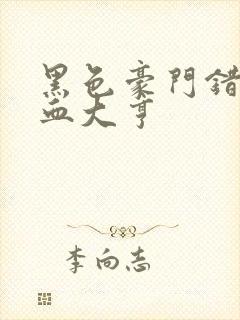 黑色豪門錯
血大亨
李向志